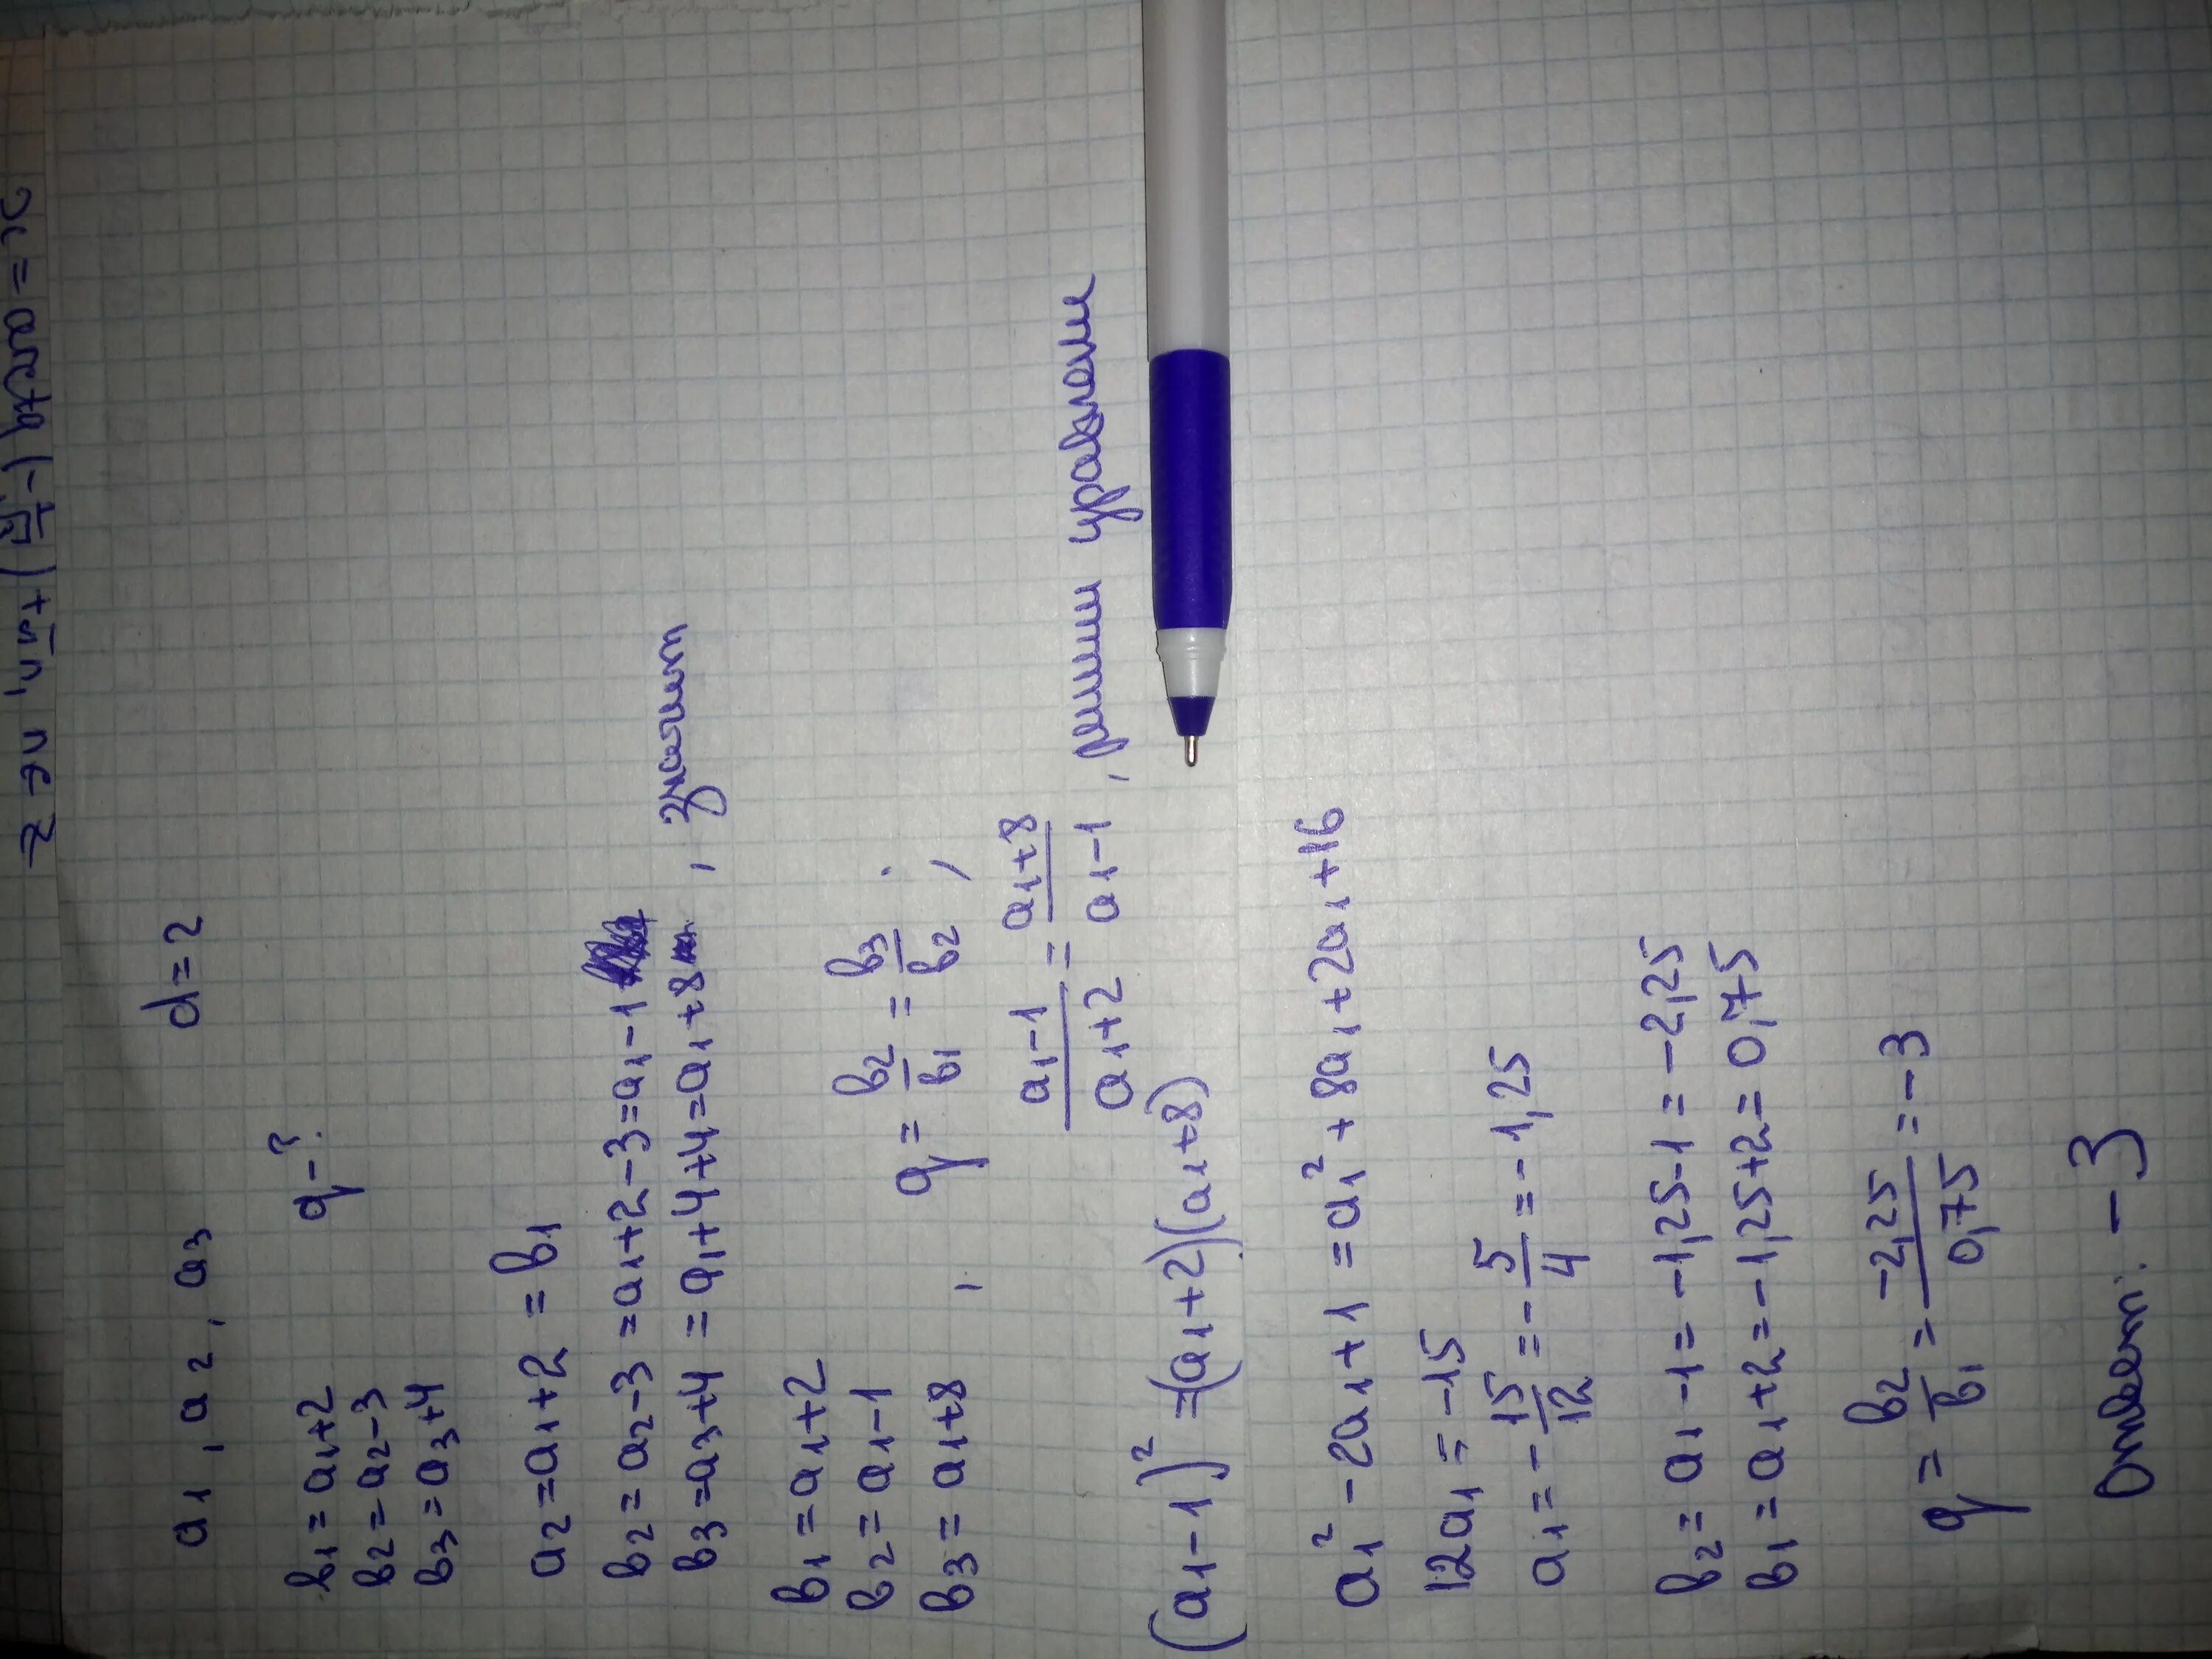 a₁, a₂, a₃ d=2
b₁=a₁+2 q-?
b₂=a₂-3
b₃=a₃+4
a₂=a₁+2=b₁
b₂=a₂-3=a₁+2-3=a₁-1
b₃=a₃+4=a₁+4+4=a₁+8, значит
b₁=a₁+2
b₂=a₁-1
b₃=a₁+8, q=b₂/b₁=b₃/b₂;
(a₁-1)/(a₁+2)=(a₁+8)/(a₁-1), решим уравнени
(a₁-1)²=(a₁+2)(a₁+8)
a₁²-2a₁+1=a₁²+8a₁+2a₁+16
12a₁=-15
a₁=-15/12=-5/4=-1,25
b₂=a₁-1=-1,25-1=-2,25
b₁=a₁+2=-1,25+2=0,75
q=b₂/b₁=-2,25/0,75=-3
Ответ: -3